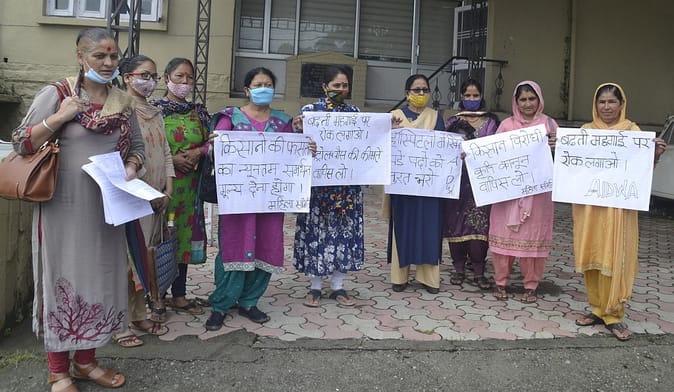 किसानों की फसल
का न्यूनतम समर्थन
मूल्य देना होगा।
महिला समिति
बढ़ती मंहगाई पर
रोक लगाओ।
की कीमतें
वापिस लो।
पदों को
भरो
किसान विरोधी
कृषि कानून
वापिस लो।
महिला समिति
बढ़ती मंहगाई पर
रोक लगाओ।
AIDWA